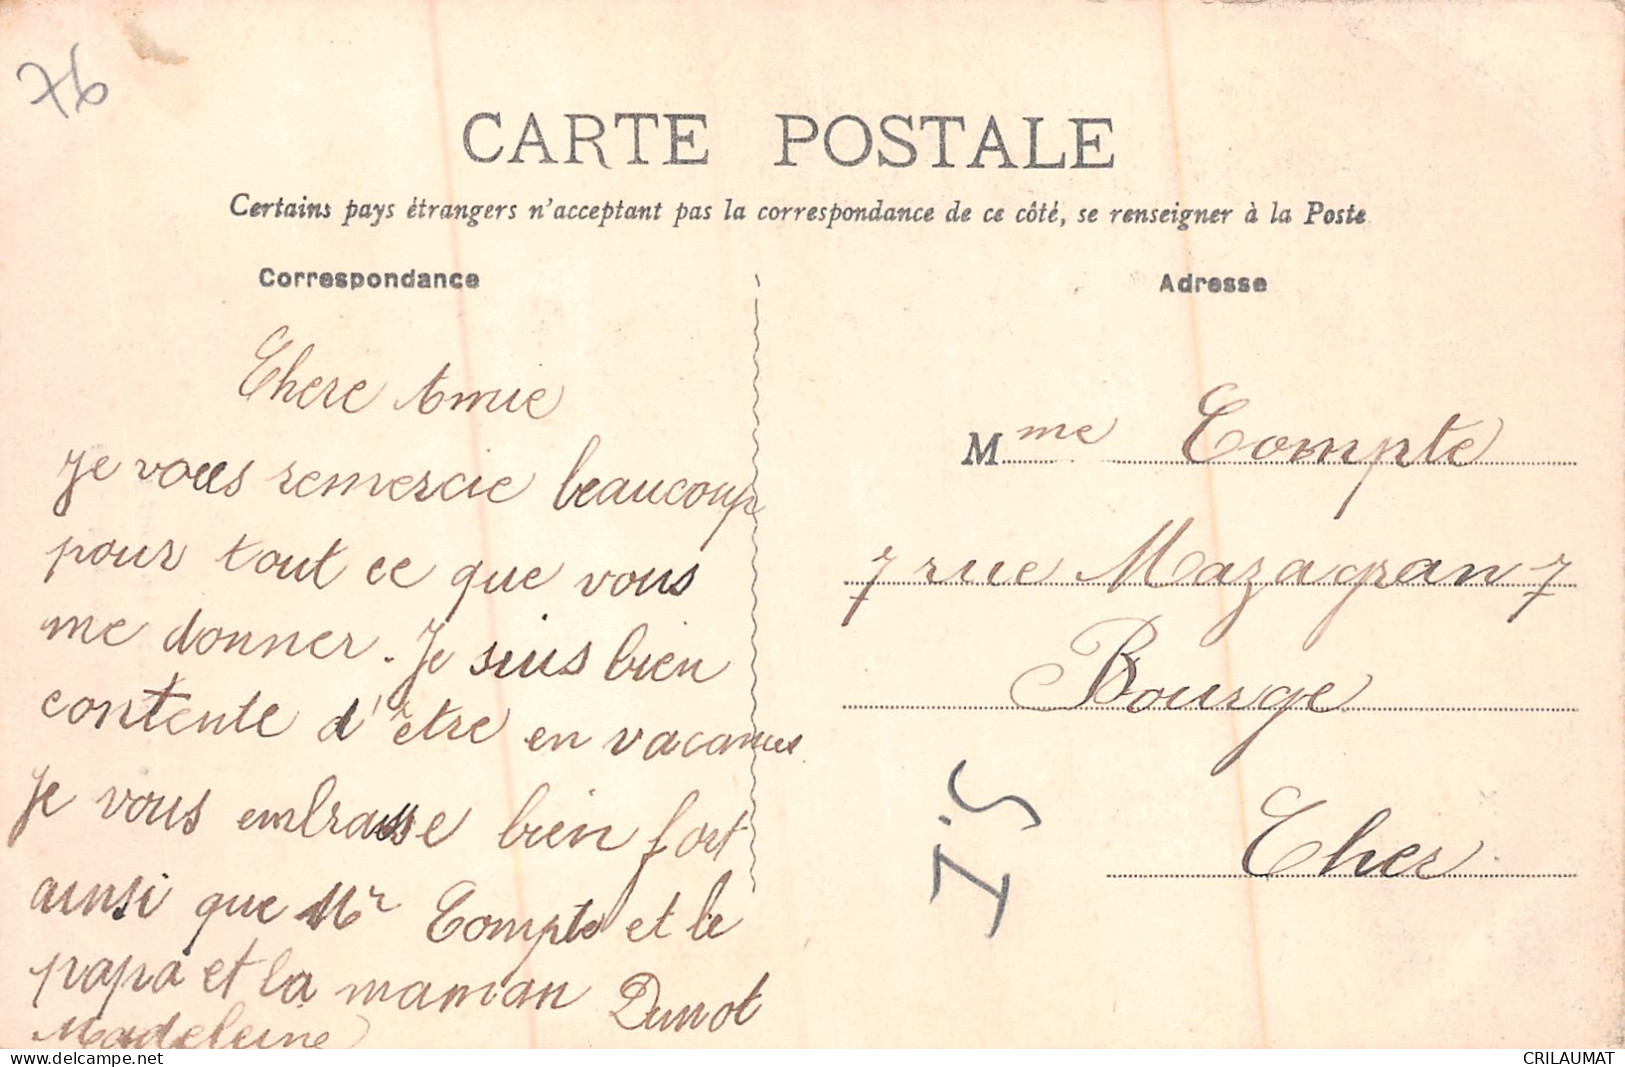 76
CARTE POSTALE
Certains pays étrangers n'acceptant pas la correspondance de ce côté, se renseigner à la Poste
Correspondance
Chere Amie
Je vous remercie beaucoup
pour tout ce que vous
me donner. Je suis bien
contente d'être en vacances
Je vous embrasse bien fort
ainsi que Mr Compte et le
papa et la maman Dunot
Madeleine
Adresse
Mme Compte
7 rue Mazagran 7
Bourge
Cher
delcampe.net
CRILAUMAT